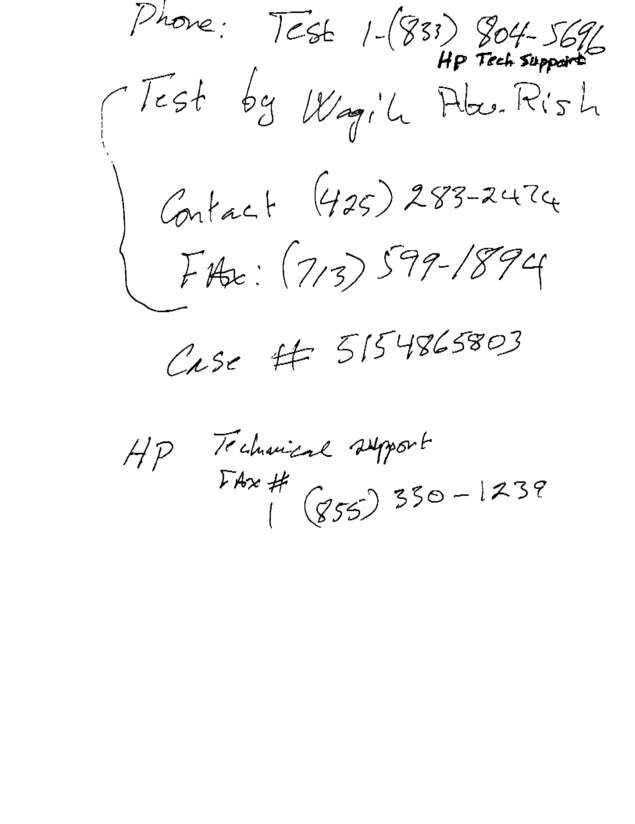 Phone: Test 1-(833) 804-5696
HP Tech Support
Test by Wagih Abu-Rish
Contact (425) 283-2474
FAx: (713) 599-1894
Case # 5154865803
HP Technical support
FAx #
1 (855) 330-1239